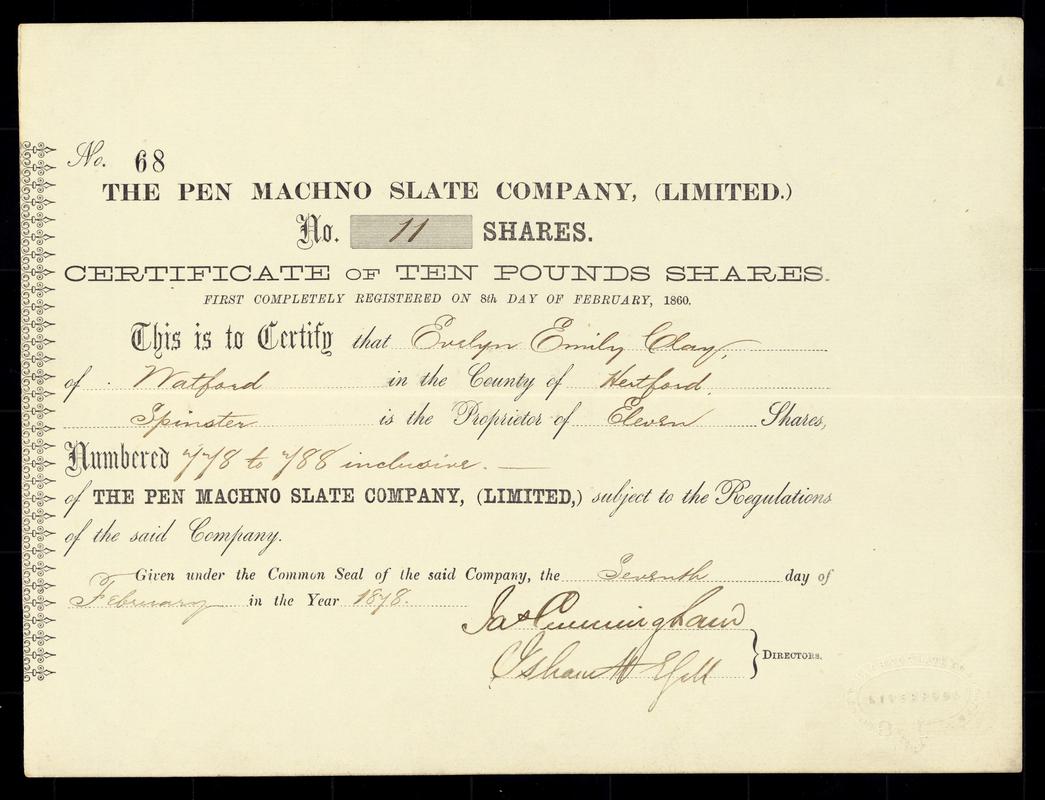 No. 68
THE PEN MACHNO SLATE COMPANY, (LIMITED.)
No. 11 SHARES.
CERTIFICATE OF TEN POUNDS SHARES.
FIRST COMPLETELY REGISTERED ON 8th DAY OF FEBRUARY, 1860.
This is to Certify that Evelyn Emily Clay,
of Watford in the County of Hertford,
Spinster is the Proprietor of Eleven Shares,
Numbered 778 to 788 inclusive. —
of THE PEN MACHNO SLATE COMPANY, (LIMITED,) subject to the Regulations
of the said Company.
Given under the Common Seal of the said Company, the Seventh day of
February in the Year 1878.
Jas Cunningham
DIRECTORS.
LIVERPOOL